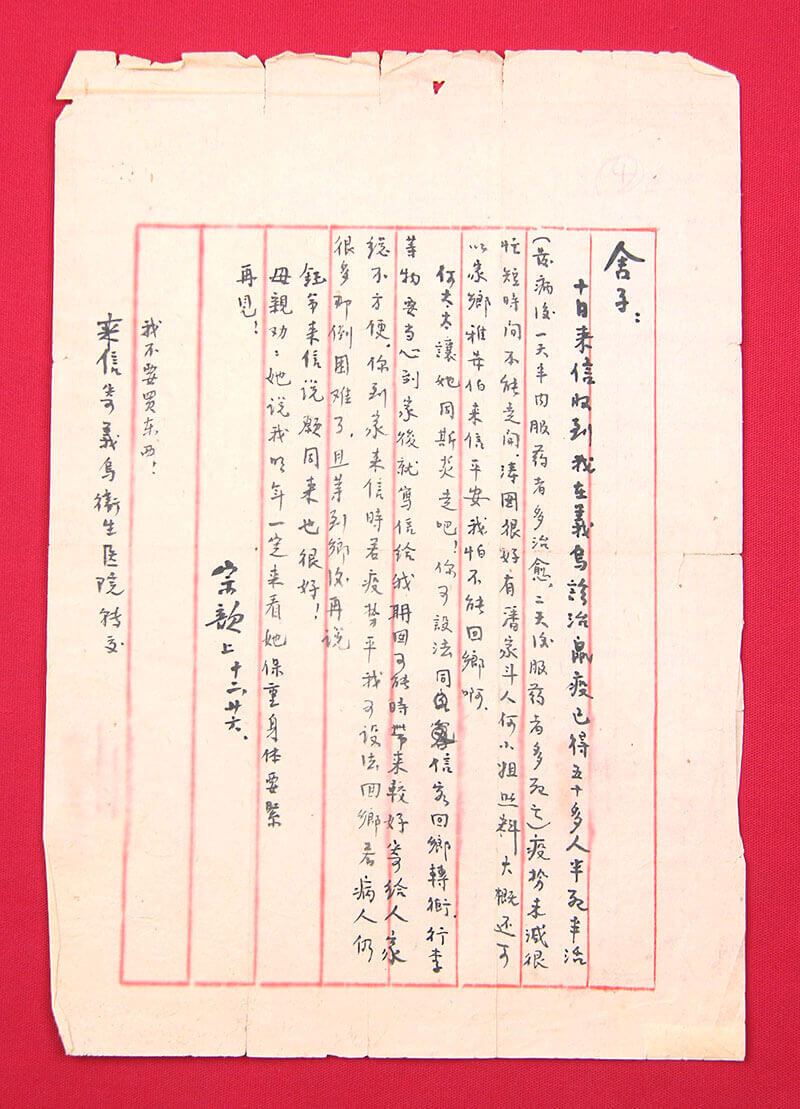 舍子：
十日来信收到我在義烏診治鼠疫已得五十多人半死半治
(蓋病後一天半内服药者多治愈，二天後服药者多死亡)疫势未減很
忙短時间不能走開，涛囝很好有潘家斗人何小姐照料大概还可
以家鄉雅安伯来信平安我怕不能回鄉啊．
何太太讓她同斯炎走吧！你可設法同信客回鄉轉衢．行李
等物要当心到家後就寫信给我棉囘可能時带来較好寄给人家
総不方便．你到家来信時若疫势平我可设法回鄉若病人仍
很多那倒困难了．且等到鄉後再说
鈺弟来信说願同来也很好！
母親劝：她说我明年一定来看她保重身体要緊
再見！
宗歆上十二廿六．
我不要買东西！
来信寄義烏衛生医院转交